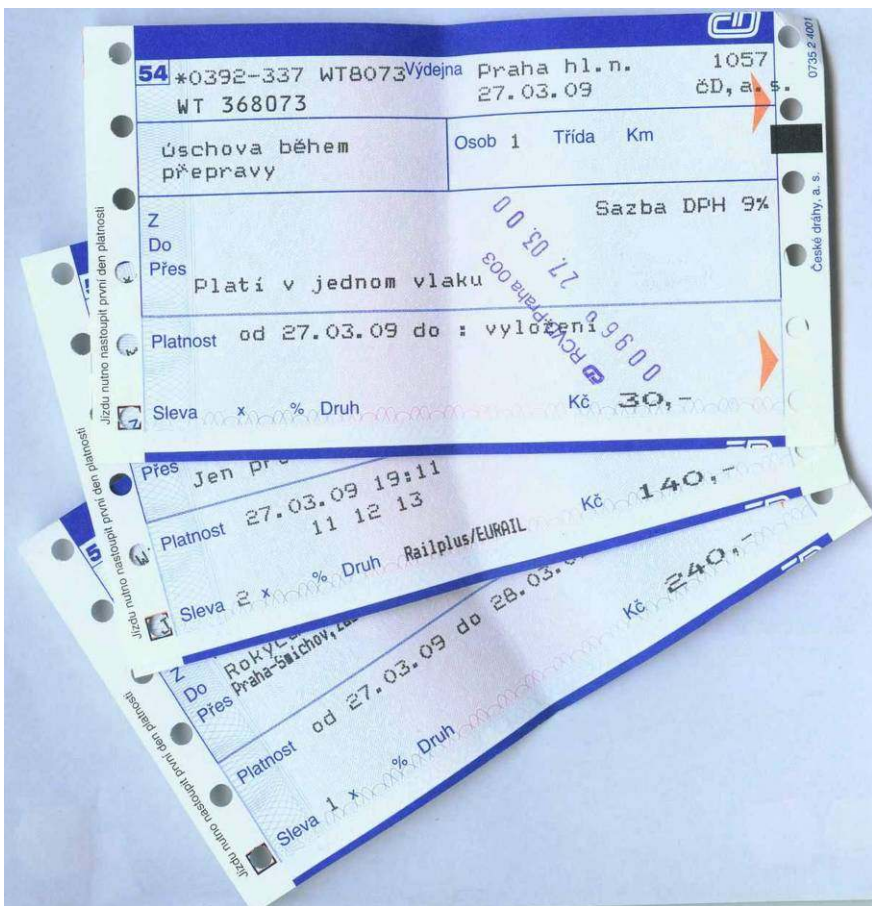 54 *0392-337 WT8073 Výdejna Praha hl.n. 1057
WT 368073 27.03.09 ČD, a.s.
úschova během Osob 1 Třída Km
přepravy
Sazba DPH 9%
Z
Do
Přes
Platí v jednom vlaku
Platnost od 27.03.09 do : vyložení
Sleva x % Druh Kč 30,-
27.03.0 0
RCVD Praha 003
0096
Jízdu nutno nastoupit první den platnosti
0735 2 4001
České dráhy, a. s.
Přes Jen
Platnost 27.03.09 19:11
11 12 13
Sleva 2 x % Druh Railplus/EURAIL Kč 140,-
Jízdu nutno nastoupit první den platnosti
5
Z
Do
Přes Praha-Smíchov,
Platnost od 27.03.09 do 28.03.
Sleva 1 x % Druh Kč 240,-
Jízdu nutno nastoupit první den platnosti